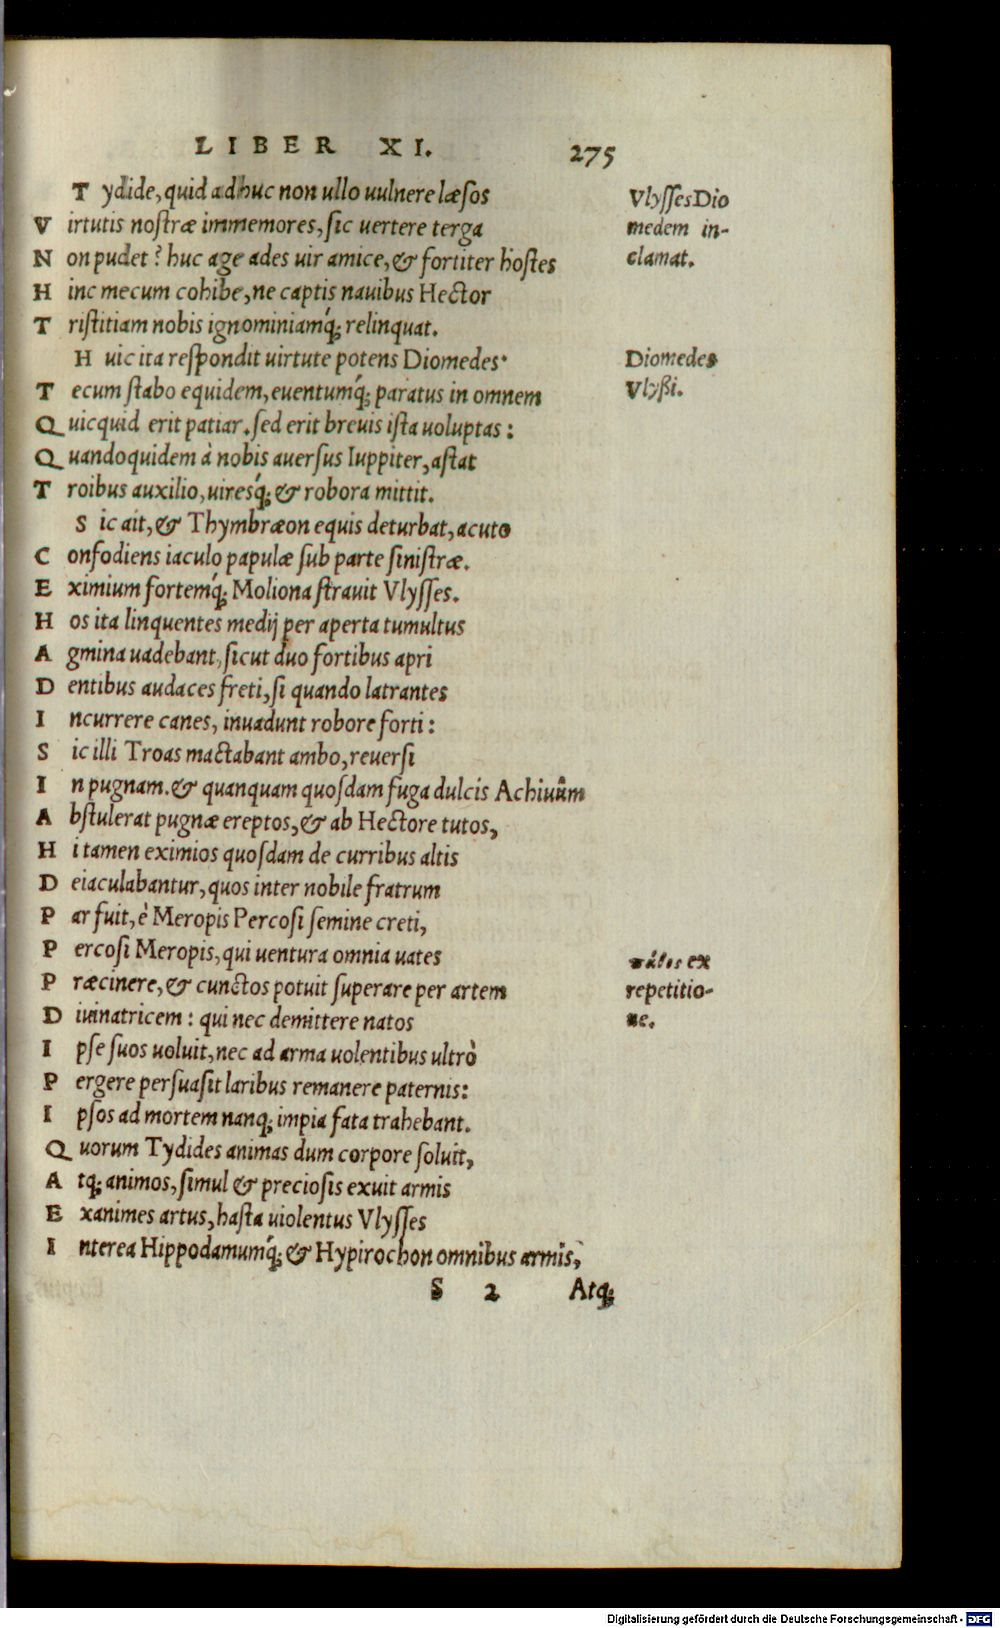 LIBER XI. 275
Tydide, quid adhuc non ullo uulnere læsos
Virtutis nostræ immemores, sic uertere terga
Non pudet? huc age ades uir amice, & fortiter hostes
Hinc mecum cohibe, ne captis nauibus Hector
Tristitiam nobis ignominiamq́; relinquat.
Huic ita respondit uirtute potens Diomedes.
Tecum stabo equidem, euentumq́; paratus in omnem
Quicquid erit patiar. sed erit breuis ista uoluptas:
Quandoquidem à nobis auersus Iuppiter, astat
Troibus auxilio, uiresq́; & robora mittit.
Sic ait, & Thymbræon equis deturbat, acuto
Confodiens iaculo papulæ sub parte sinistræ.
Eximium fortemq́; Moliona strauit Vlysses.
Hos ita linquentes medij per aperta tumultus
Agmina uadebant, sicut duo fortibus apri
Dentibus audaces freti, si quando latrantes
Incurrere canes, inuadunt robore forti:
Sic illi Troas mactabant ambo, reuersi
In pugnam. & quanquam quosdam fuga dulcis Achiuûm
Abstulerat pugnæ ereptos, & ab Hectore tutos,
Hi tamen eximios quosdam de curribus altis
Deiaculabantur, quos inter nobile fratrum
Par fuit, è Meropis Percosi semine creti,
Percosi Meropis, qui uentura omnia uates
Præcinere, & cunctos potuit superare per artem
Diuinatricem: qui nec demittere natos
Ipse suos uoluit, nec ad arma uolentibus ultrò
Pergere persuasit laribus remanere paternis:
Ipsos ad mortem nanq; impia fata trahebant.
Quorum Tydides animas dum corpore soluit,
Atq; animos, simul & preciosis exuit armis
Exanimes artus, hasta uiolentus Vlysses
Interea Hippodamumq́; & Hypirochon omnibus armis,
S 2 Atq;
Vlysses Dio
medem in-
clamat.
Diomedes
Vlyßi.
ex
repetitio-
ne.
Digitalisierung gefördert durch die Deutsche Forschungsgemeinschaft - DFG